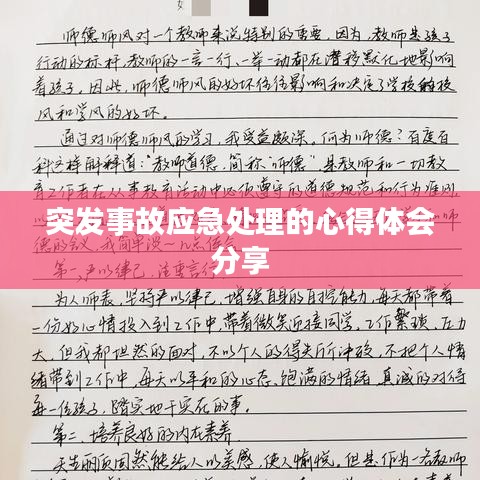 师德师风对一个教师来说特别的重要，因为，教师是孩子
行动的标杆，教师的一言一行、一举一动都在潜移默化地影响
着孩子，因此，师德师风的好坏往往影响和决定了学校的校
风和学风的好坏。
通过对师德师风的学习，我受益颇深。何为师德？百度百
科这样解释道："教师道德，简称"师德"是教师和一切教
育工作者在从事教育活动中必须遵守的道德规范和行为准则
突发事故应急处理的心得体会
分享
德的会议，我简单说一几点体会
第一、严以律己，注重言行
为人师表，坚持严以律己，增强自身的自控能力，每天都带着
一份好心情投入到工作中，带着微笑迎接同学，工作繁琐、压力
大，但我都坦然的面对，不以个人的得失所冲破，不把个人情
绪带到工作中，每天以平和的心态、饱满的情绪，真诚的对待
每一位孩子，踏实地干实在的事。
第二、培养良好的内在素养
天生丽质固然能给人以美感，使人愉悦。但是作为一名教师